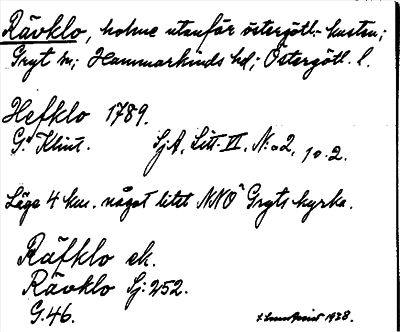 Rävklo, holme utanför östergötl.-kusten;
Gryt sn; Hammarkinds hd; Östergötl. l.
Hefklo 1789.
G. Klint. Sj.A, Litt. VI, No 2, 10.2.
Läge 4 km. något litet NNÖ Gryts kyrka.
Räfklo ek.
Rävklo Sj: 252.
G. 46.
1938.